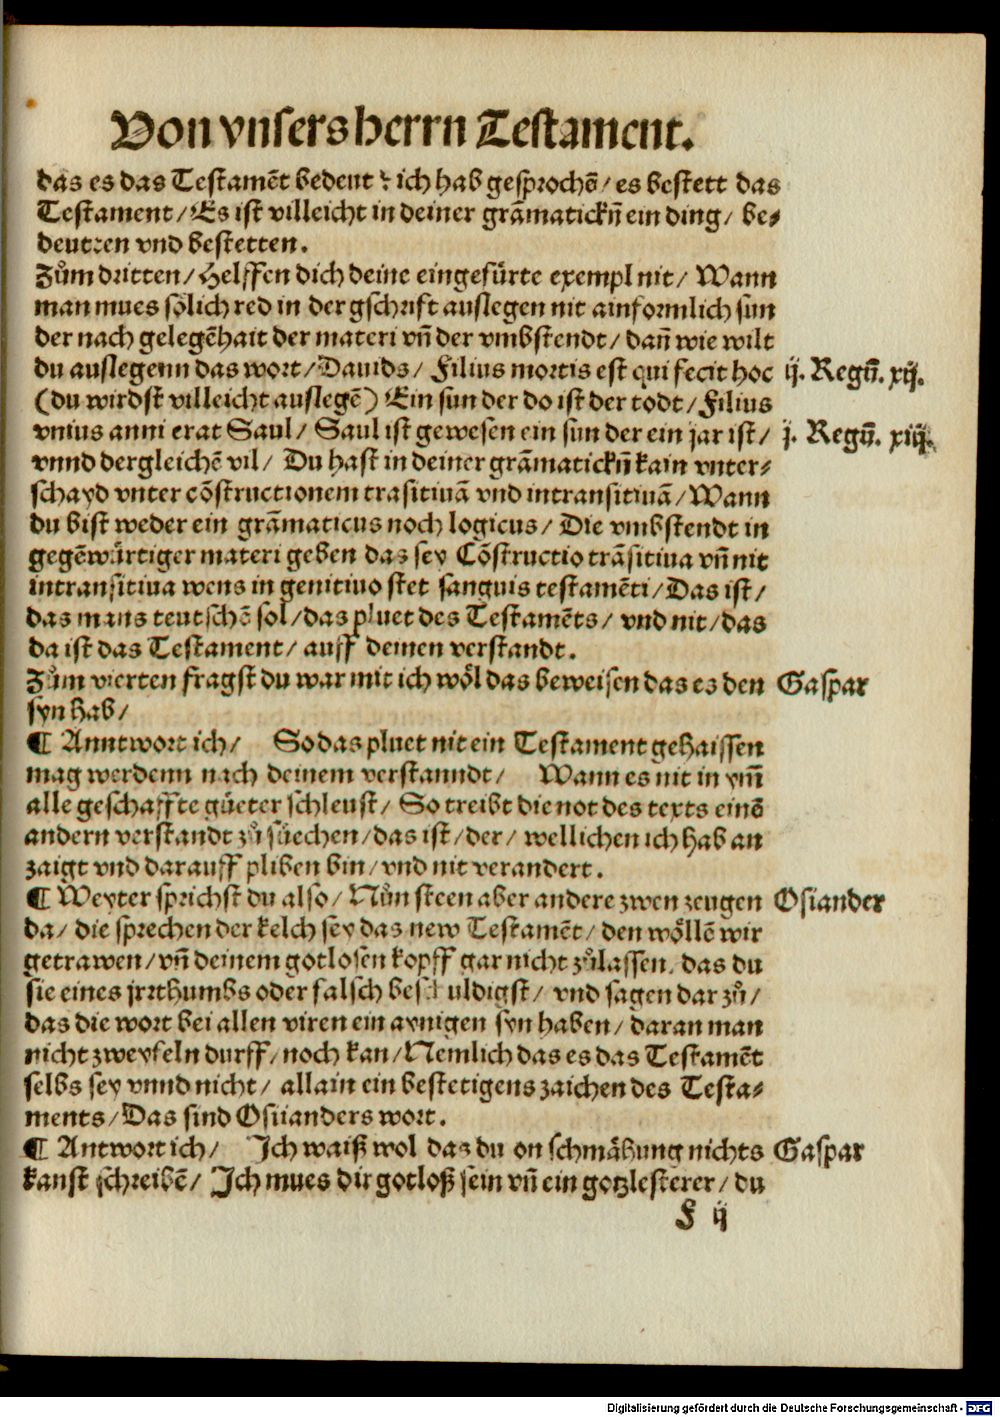 Von vnsers herrn Testament.
das es das Testamēt bedeut ⁊ ich hab gesprochē/ es bestett das
Testament/ Es ist villeicht in deiner grāmatickñ ein ding/ be⸗
deutzen vnd bestetten.
Zům dritten/ Helffen dich deine eingefürte exempl nit/ Wann
man mues sölich red in der gschrift auslegen nit ainformlich sun
der nach gelegēhait der materi vñ der vmbstendt/ dañ wie wilt
du auslegenn das wort/ Dauids/ Filius mortis est qui fecit hoc ij. Regū. xij.
(du wirdst villeicht auslegē) Ein sun der do ist der todt/ Filius
vnius anni erat Saul/ Saul ist gewesen ein sun der ein jar ist/ j. Regū. xiij.
vnnd dergleichē vil/ Du hast in deiner grāmatickñ kain vnter⸗
schayd vnter cōstructionem trāsitiuā vnd intransitiuā/ Wann
du bist weder ein grāmaticus noch logicus/ Die vmbstendt in
gegēwürtiger materi geben das sey Cōstructio trāsitiua vñ nit
intransitiua wens in genitiuo stet sanguis testamēti/ Das ist/
das mans teutschē sol/ das pluet des Testamēts/ vnd nit/ das
da ist das Testament/ auff deinen verstandt.
Zům vierten fragst du war mit ich wöl das beweisen das es den Gaspar
syn hab/
¶ Anntwort ich/ So das pluet nit ein Testament gehaissen
mag werdenn nach deinem verstanndt/ Wann es nit in ym̄
alle geschaffte güeter schleust/ So treibt die not des texts einē
andern verstandt zů süechen/ das ist/ der/ wellichen ich hab an
zaigt vnd darauff pliben bin/ vnd nit verandert.
¶ Weyter sprichst du also/ Nůn steen aber andere zwen zeugen Osiander
da/ die sprechen der kelch sey das new Testamēt/ den wöllē wir
getrawen/ vñ deinem gotlosen kopff gar nicht zůlassen, das du
sie eines jrrthumbs oder falsch beschuldigst/ vnd sagen dar zů/
das die wort bei allen viren ein aynigen syn haben/ daran man
nicht zweyfeln durff/ noch kan/ Nemlich das es das Testamēt
selbs sey vnnd nicht/ allain ein bestetigens zaichen des Testa⸗
ments/ Das sind Osiianders wort.
¶ Antwort ich/ Ich waiß wol das du on schmähung nichts Gaspar
kanst schreibē/ Ich mues dir gotloß sein vñ ein gotzlesterer/ du
F ij
Digitalisierung gefördert durch die Deutsche Forschungsgemeinschaft - DFG